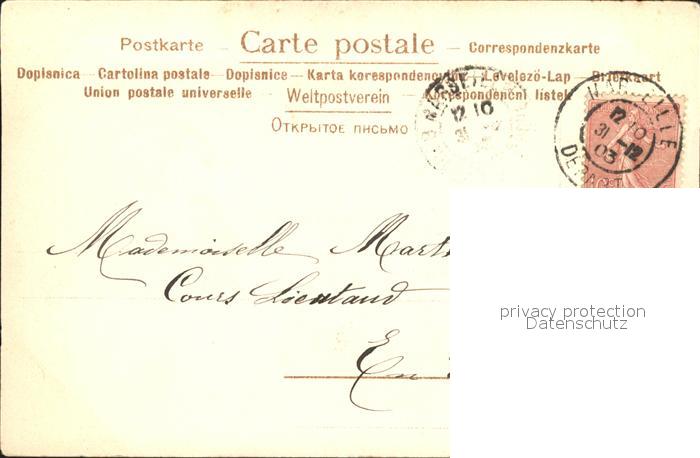 Postkarte — Carte postale — Correspondenzkarte
Dopisnica — Cartolina postale — Dopisnice — Karta korespondencyjna — Levelező-Lap — Briefkaart
Union postale universelle — Weltpostverein — Korespondenční listek
Открытое письмо
MARSEILLE
12 10
31
MARSEILLE
12 10
31 -12
03
DEPART
Mademoiselle Mart
Cours Lieutaud
En
privacy protection
Datenschutz